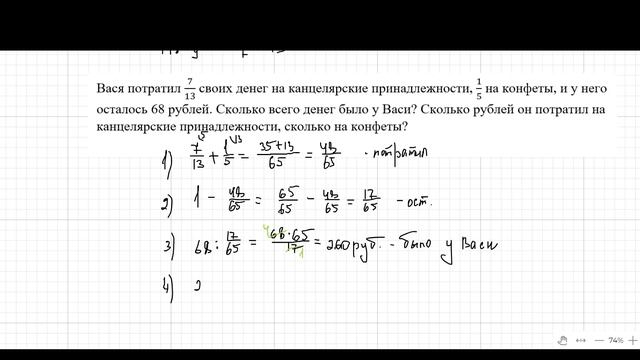 Вася потратил 7/13 своих денег на канцелярские принадлежности, 1/5 на конфеты, и у него
осталось 68 рублей. Сколько всего денег было у Васи? Сколько рублей он потратил на
канцелярские принадлежности, сколько на конфеты?
1) 7/13 + 1/5 = 35+13/65 = 48/65 - потратил
2) 1 - 48/65 = 65/65 - 48/65 = 17/65 - ост.
3) 68 : 17/65 = 68·65/17 = 260 руб. - было у Васи
4)
74%